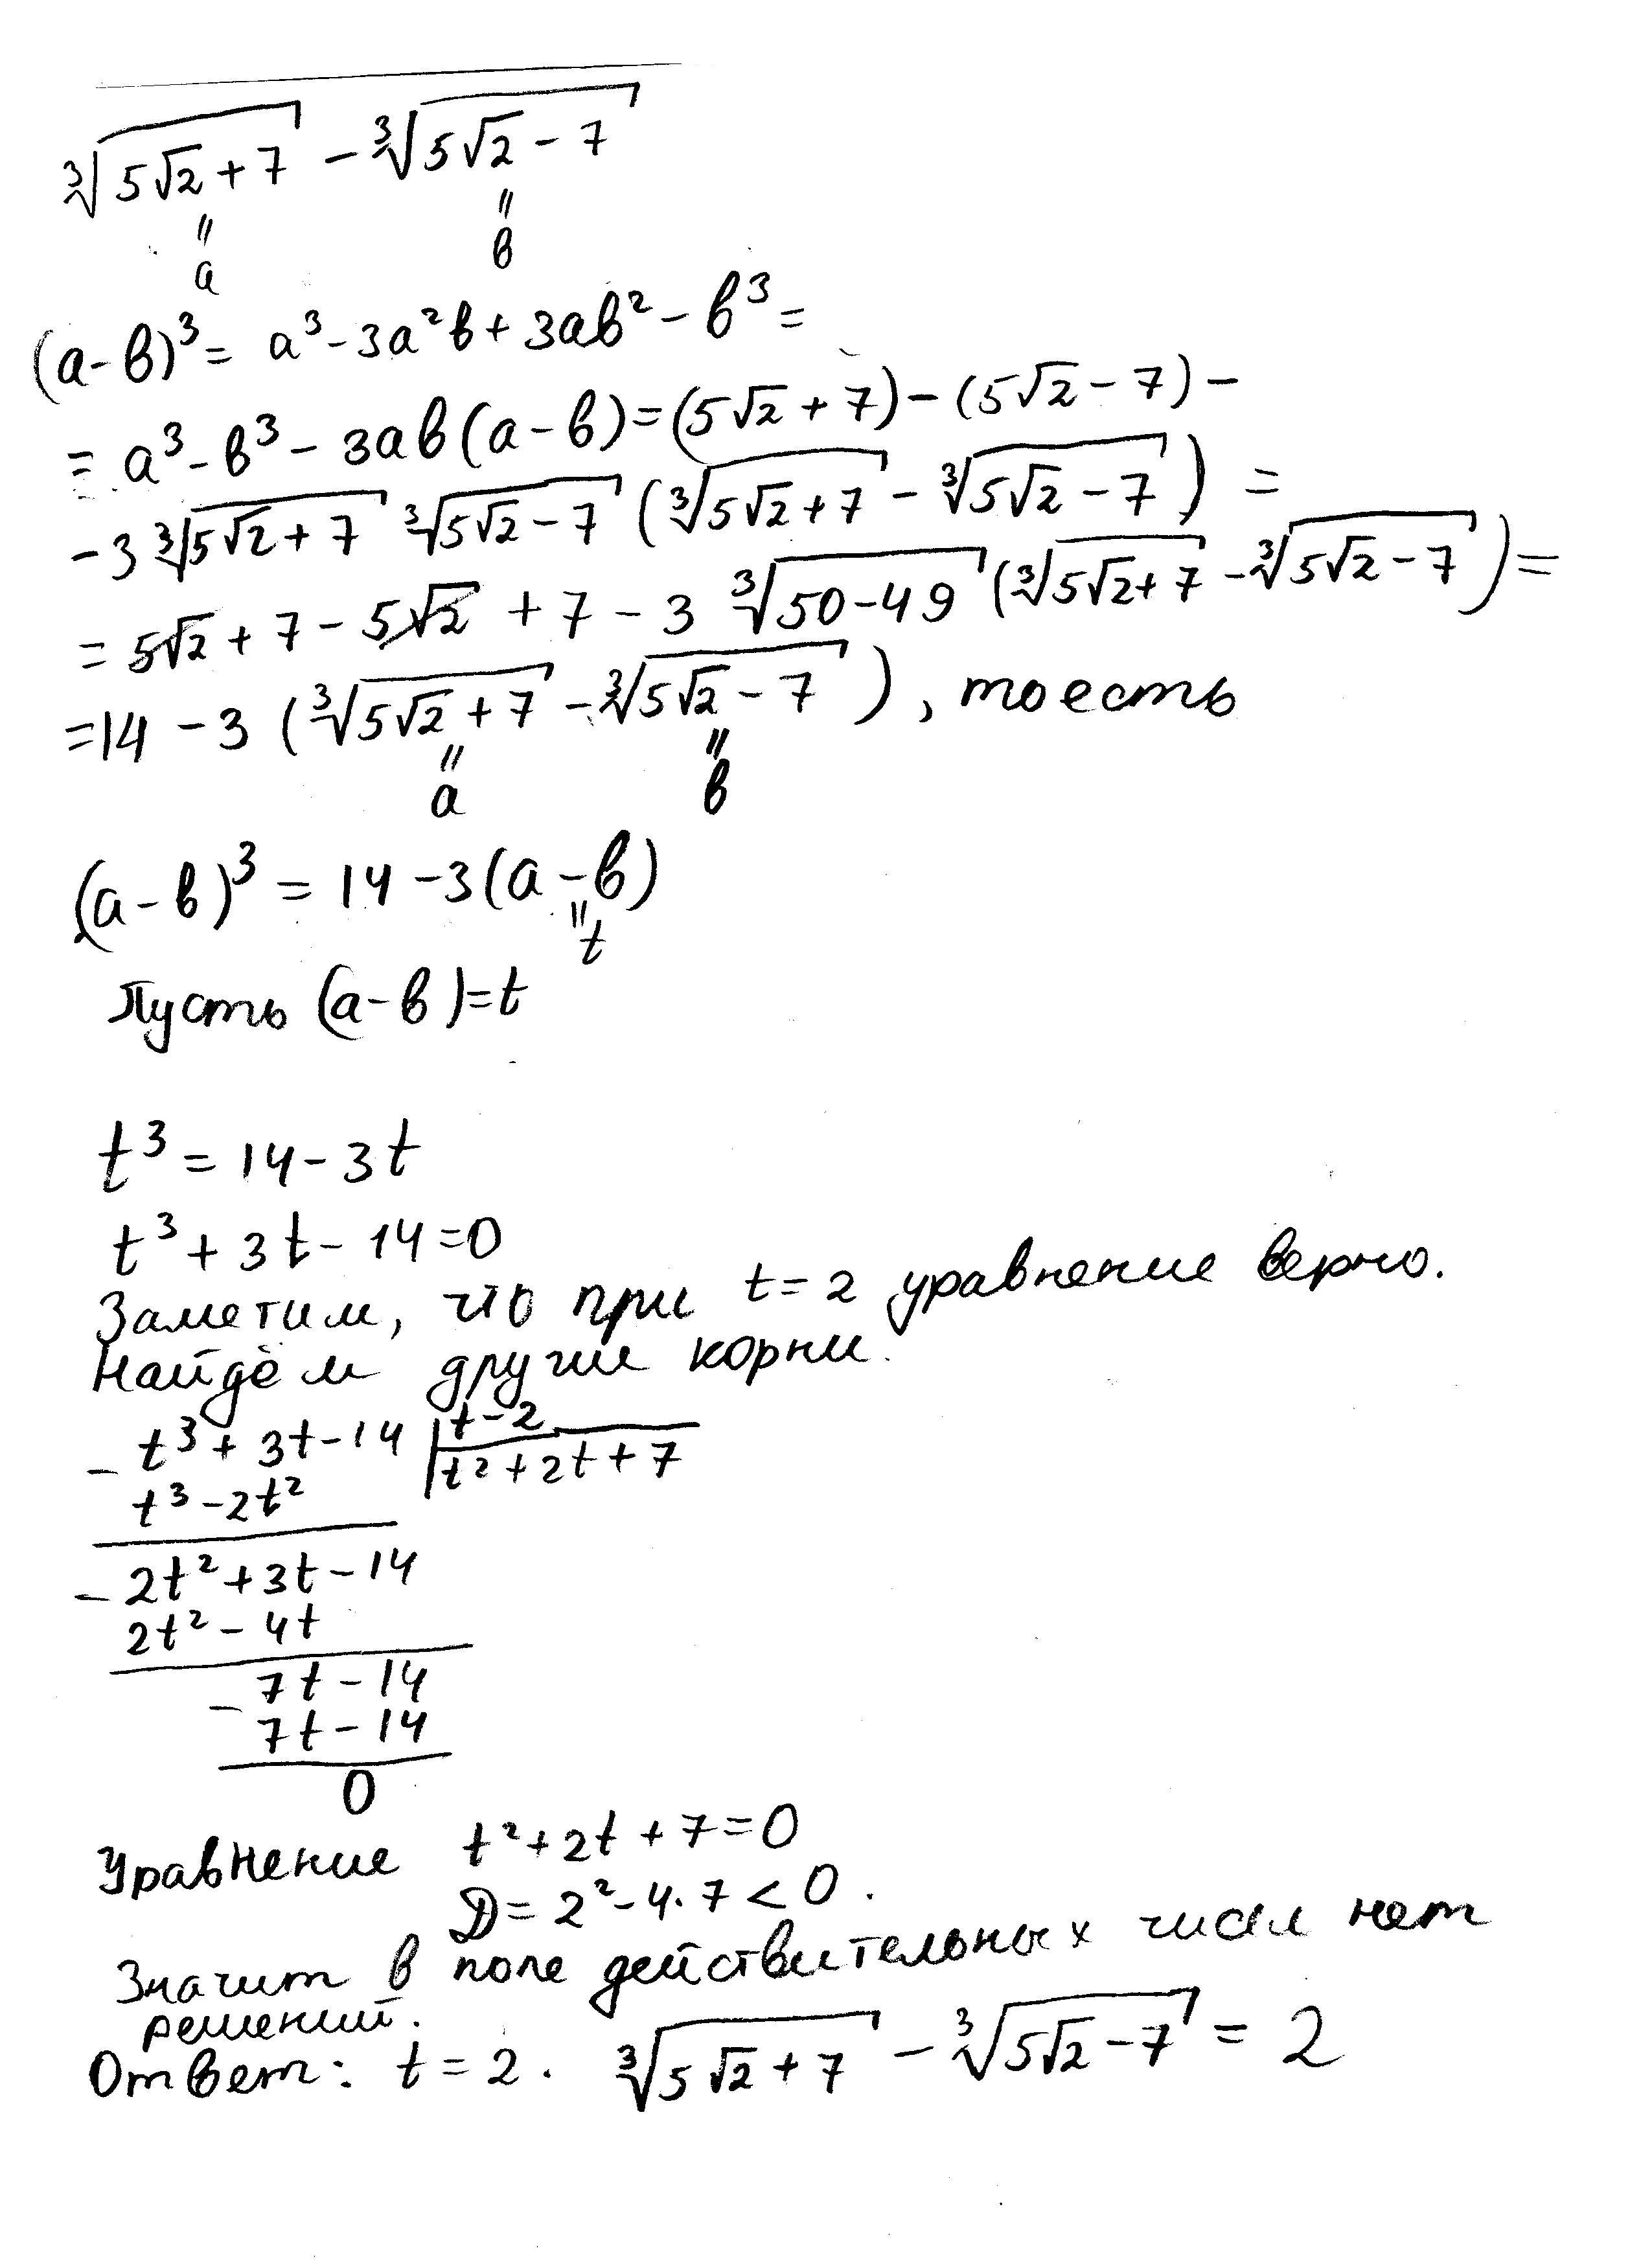 ∛(5√2 + 7) - ∛(5√2 - 7)
" "
a в
(a-в)³ = a³ - 3a²в + 3aв² - в³ =
= a³ - в³ - 3aв(a-в) = (5√2 + 7) - (5√2 - 7) -
-3 ∛(5√2 + 7) ∛(5√2 - 7) (∛(5√2 + 7) - ∛(5√2 - 7)) =
= 5√2 + 7 - 5√2 + 7 - 3 ∛(50-49) (∛(5√2 + 7) - ∛(5√2 - 7)) =
= 14 - 3 (∛(5√2 + 7) - ∛(5√2 - 7)), то есть
" "
a в
(a-в)³ = 14 - 3(a-в)
"
t
Пусть (a-в)=t
t³ = 14 - 3t
t³ + 3t - 14 = 0
Заметим, что при t = 2 уравнение верно.
Найдём другие корни.
- t³ + 3t - 14 | t - 2
t³ - 2t² | t² + 2t + 7
- 2t² + 3t - 14
2t² - 4t
- 7t - 14
7t - 14
0
Уравнение t² + 2t + 7 = 0
D = 2² - 4·7 < 0.
Значит в поле действительных чисел нет
решений.
Ответ: t = 2. ∛(5√2 + 7) - ∛(5√2 - 7) = 2